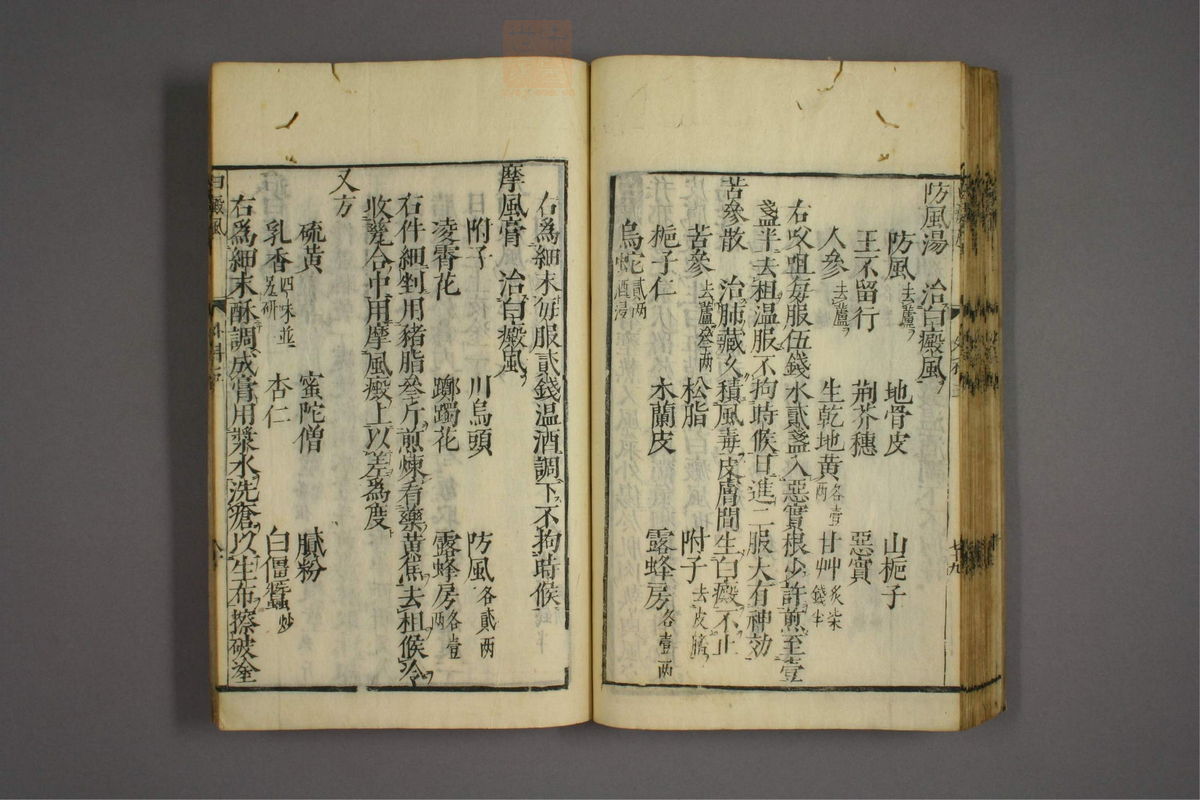 防風湯 治白癜風
防風去蘆 地骨皮 山梔子
王不留行 荊芥穗 惡實
人參去蘆 生乾地黄各壹兩 甘艸炙柒錢半
右㕮咀每服伍錢水貳盞入惡實根少許煎至壹
盞半去柤温服不拘時候日進二服大有神効
苦參散 治肺藏久積風毒皮膚間生白癜不止
苦參去蘆叄兩 松脂 附子去皮臍
梔子仁 木蘭皮 露蜂房各壹兩
烏蛇貳兩酒浸
右爲細末每服貳錢温酒調下不拘時候
摩風膏 治白癜風
附子 川烏頭 防風各貳兩
凌霄花 躑躅花 露蜂房各壹兩
右件細剉用豬脂叄斤煎煉看藥黄焦去柤候冷
收瓷合中用摩風癜上以差為度
又方
硫黄 蜜陀僧 膩粉
乳香四味並另研 杏仁 白僵蠶炒
右爲細末酥調成膏用漿水洗瘡以生布擦破塗
白癜風